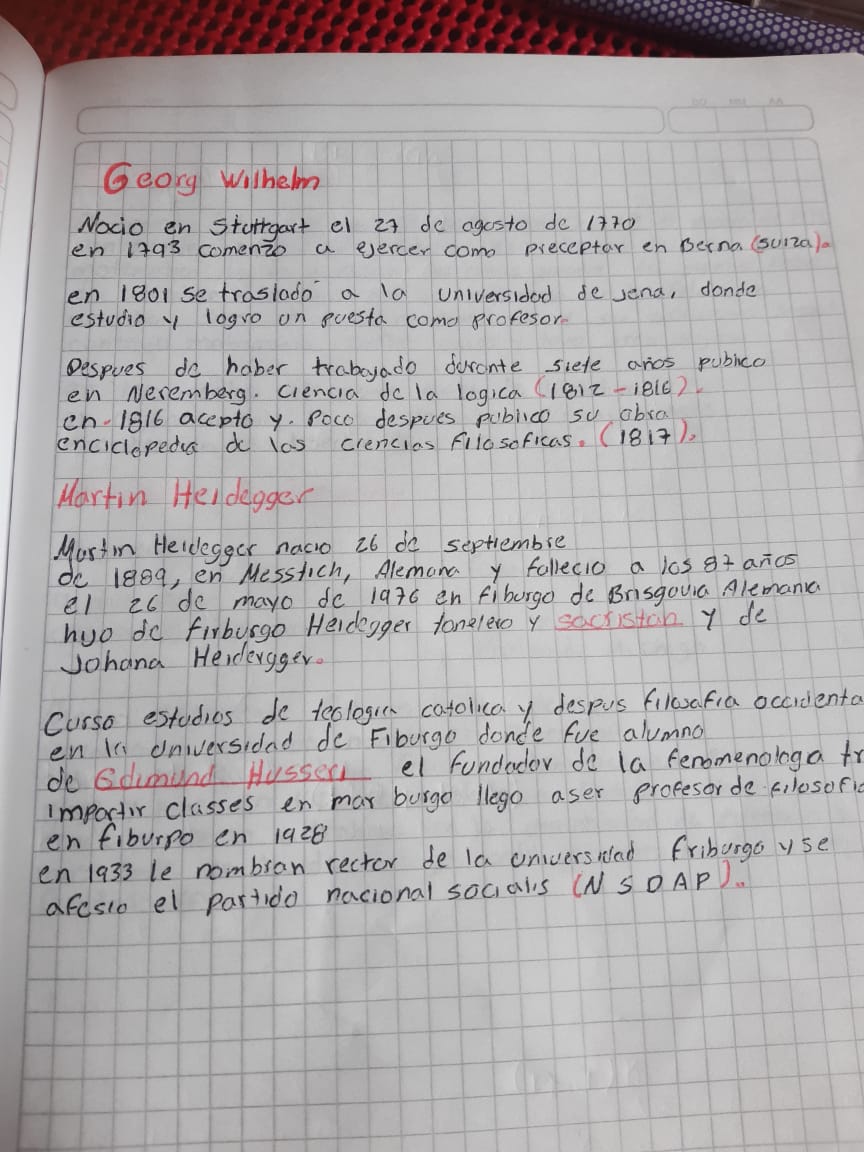 Georg Wilhelm
Nacio en Stuttgart el 27 de agosto de 1770
en 1793 comenzo a ejercer como preceptor en Berna (suiza).
en 1801 se traslado a la universidad de jena, donde
estudio y logro un puesta como profesor.
Despues de haber trabajado durante siete años pubico
en Neremberg. ciencia de la logica (1812 - 1816).
en. 1816 acepto y. Poco despues publico su obra
enciclopedia de las ciencias filosoficas. (1817).
Martin Heidegger
Martin Heidegger nacio 26 de septiembre
de 1889, en Messtich, Alemana y fallecio a los 87 años
el 26 de mayo de 1976 en fiburgo de Brisgovia Alemania
hijo de firburgo Heidegger tonelero y sacristan y de
Johana Heidergger.
Curso estudios de teologia catolica y despus filosafia occidenta
en la Universidad de Fiburgo donde fue alumno
de Edimund Husserl el fundador de la fenomenologa tr
impartir classes en mar burgo llego aser profesor de filosofia
en fiburpo en 1928
en 1933 le nombran rector de la universidad friburgo y se
afesio el partido nacional socialis (N S D A P).